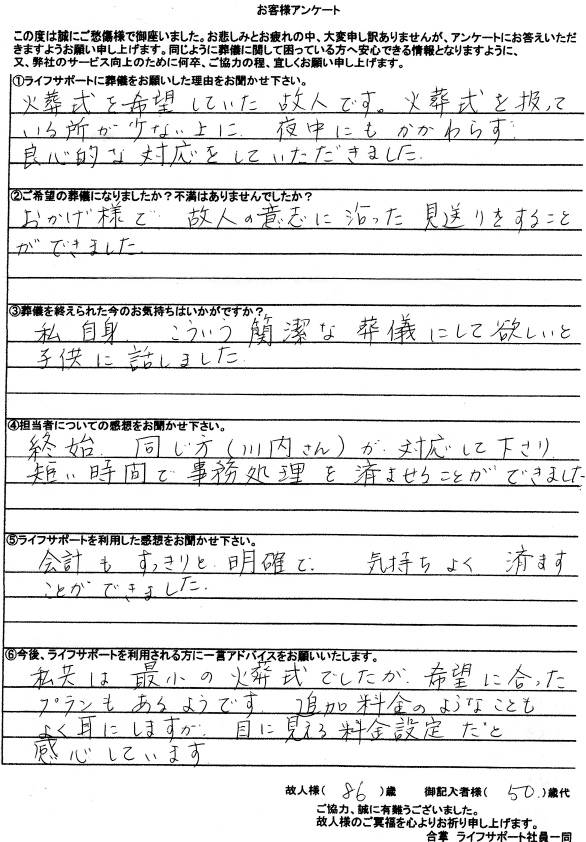 お客様アンケート
この度は誠にご愁傷様で御座いました。お悲しみとお疲れの中、大変申し訳ありませんが、アンケートにお答えいただ
きますようお願い申し上げます。同じように葬儀に関して困っている方へ安心できる情報となりますように、
又、弊社のサービス向上のために何卒、ご協力の程、宜しくお願い申し上げます。
①ライフサポートに葬儀をお願いした理由をお聞かせ下さい。
火葬式を希望していた故人です。火葬式を扱って
いる所が少ない上に、夜中にもかかわらず
良心的な対応をしていただきました。
②ご希望の葬儀になりましたか？不満はありませんでしたか？
おかげ様で 故人の意志に沿った見送りをすること
ができました。
③葬儀を終えられた今のお気持ちはいかがですか？
私自身 こういう簡潔な葬儀にして欲しいと
子供に話しました。
④担当者についての感想をお聞かせ下さい。
終始、同じ方（川内さん）が対応して下さり、
短い時間で事務処理を済ませることができました
⑤ライフサポートを利用した感想をお聞かせ下さい。
会計もすっきりと明確で、 気持ちよく済ます
ことができました。
⑥今後、ライフサポートを利用される方に一言アドバイスをお願いいたします。
私共は最小の火葬式でしたが、希望に合った
プランもあるようです。追加料金のようなことも
よく耳にしますが、目に見える料金設定だと
感心しています
故人様（ 86 ）歳 御記入者様（ 50 ）歳代
ご協力、誠に有難うございました。
故人様のご冥福を心よりお祈り申し上げます。
合掌 ライフサポート社員一同